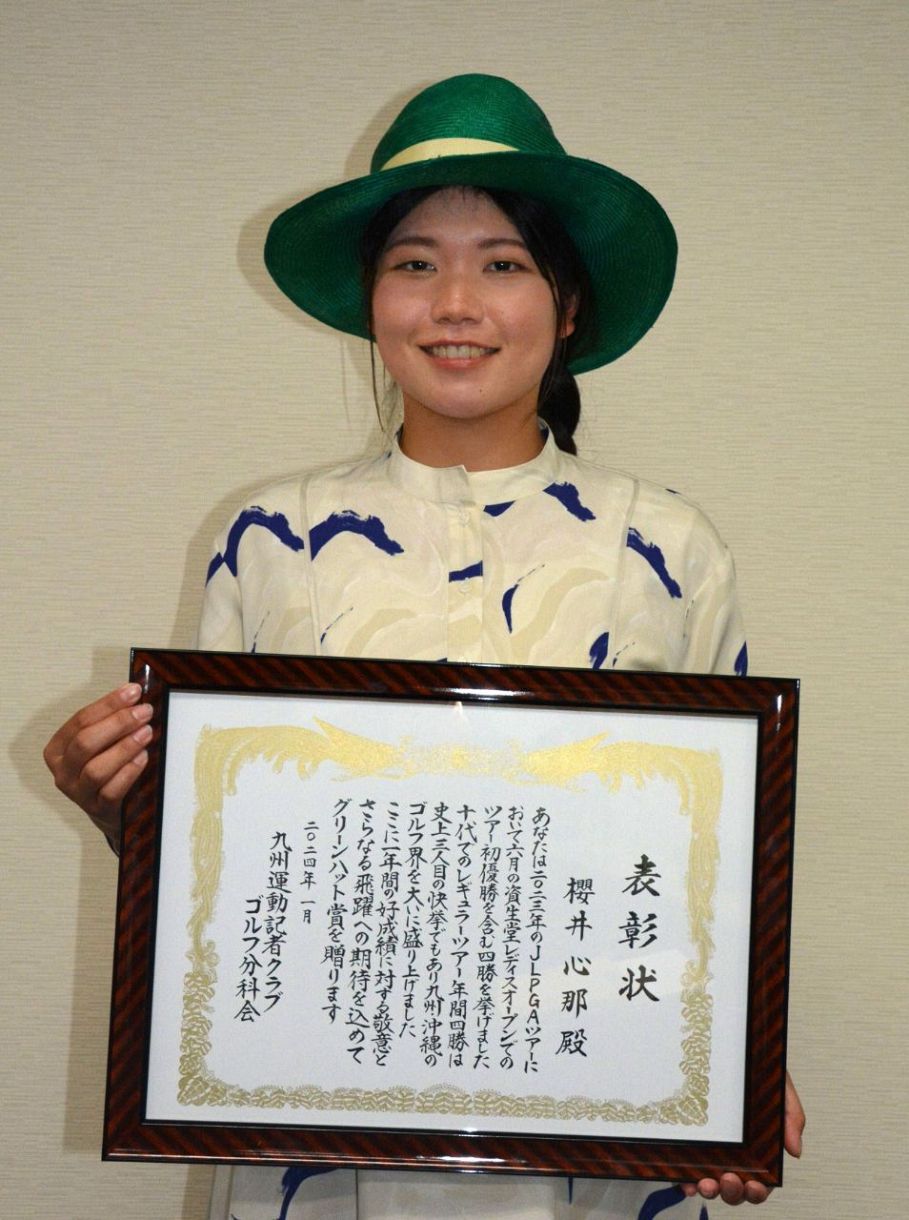 表彰状
櫻井心那殿
あなたは二〇二三年のJLPGAツアーに
おいて六月の資生堂レディスオープンでの
ツアー初優勝を含む四勝を挙げました
十代でのレギュラーツアー年間四勝は
史上三人目の快挙でもあり九州・沖縄の
ゴルフ界を大いに盛り上げました
ここに一年間の好成績に対する敬意と
さらなる飛躍への期待を込めて
グリーンハット賞を贈ります
二〇二四年一月
九州運動記者クラブ
ゴルフ分科会